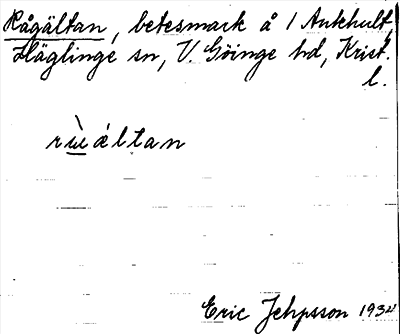 Rågältan, betesmark å 1 Ankhult,
Häglinge sn, V. Göinge hd, Krist.
l.
rùu̶áltan
Eric Jehpsson 1934